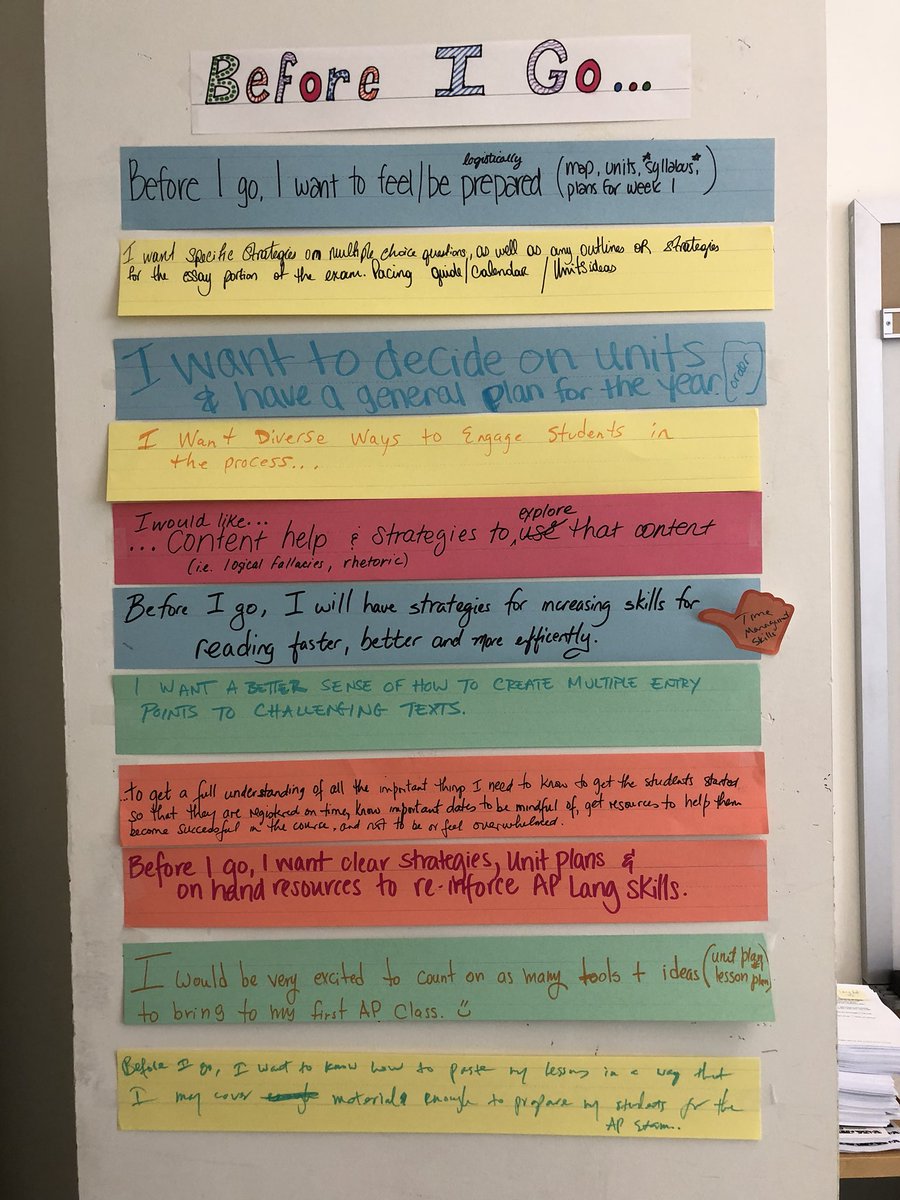 Before I Go...
Before I go, I want to feel/be logistically prepared (map, units, *syllabus*,
plans for week 1)
I want specific strategies on multiple choice questions, as well as any outlines or strategies
for the essay portion of the exam. Pacing guide/calendar /Units ideas
I want to decide on units
& have a general plan for the year. [order]
I Want Diverse Ways to Engage Students in
the process...
I would like...
... content help & strategies to, use explore that content
(i.e. logical fallacies, rhetoric)
Before I go, I will have strategies for increasing skills for
reading faster, better and more efficently.
Time
Managing
Skills
I WANT A BETTER SENSE OF HOW TO CREATE MULTIPLE ENTRY
POINTS TO CHALLENGING TEXTS.
...to get a full understanding of all the important thing I need to know to get the students started
so that they are registered on time, know important dates to be mindful of, get resources to help them
become successful in the course, and not to be or feel overwhelmed.
Before I go, I want clear strategies, Unit plans &
on hand resources to re-inforce AP Lang Skills.
I would be very excited to count on as many tools + ideas (unit plan
lesson plan)
to bring to my first AP Class. :)
Before I go, I want to know how to paste my lessons in a way that
I may cover materials enough to prepare my students for the
AP exam.